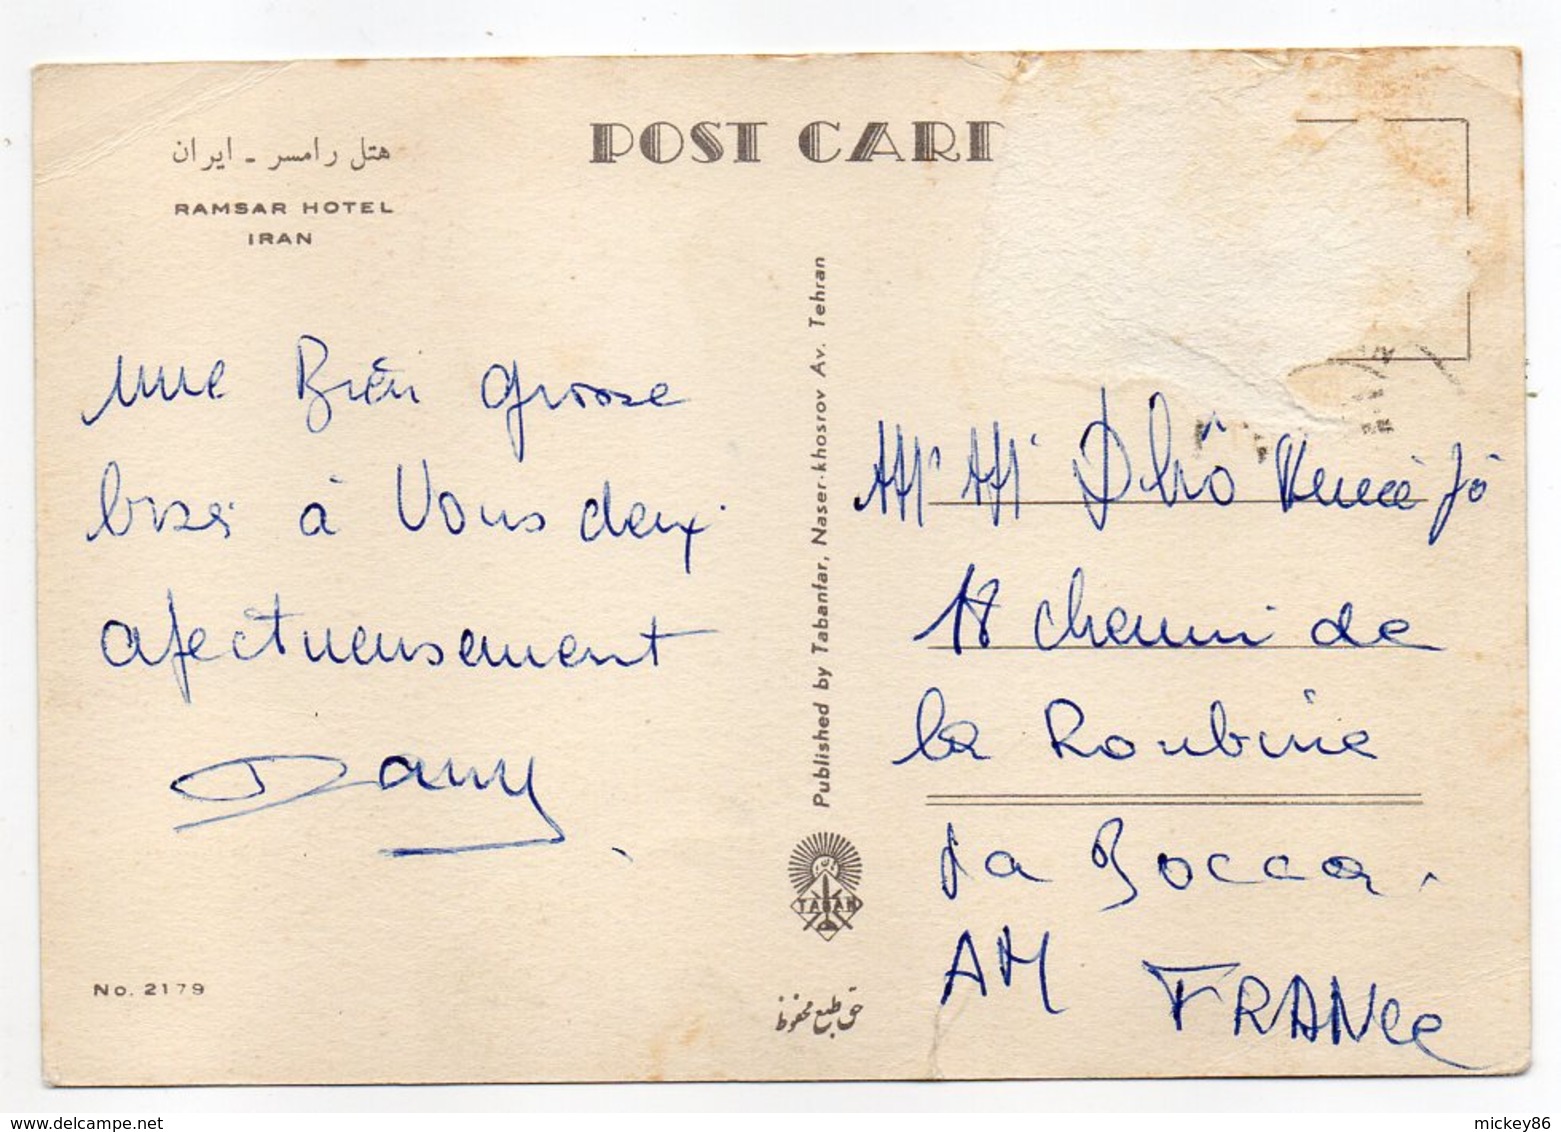 هتل رامسر - ایران
RAMSAR HOTEL
IRAN
POST CARD
une Bien grosse
bise à Vous deux
afectueusement
Dany
No. 2179
Published by Tabanfar, Naser-khosrov Av. Tehran
TABAN
حق طبع محفوظ
18 chemin de
la Roubine
La Bocca.
AM FRANCE
www.delcampe.net
mickey86